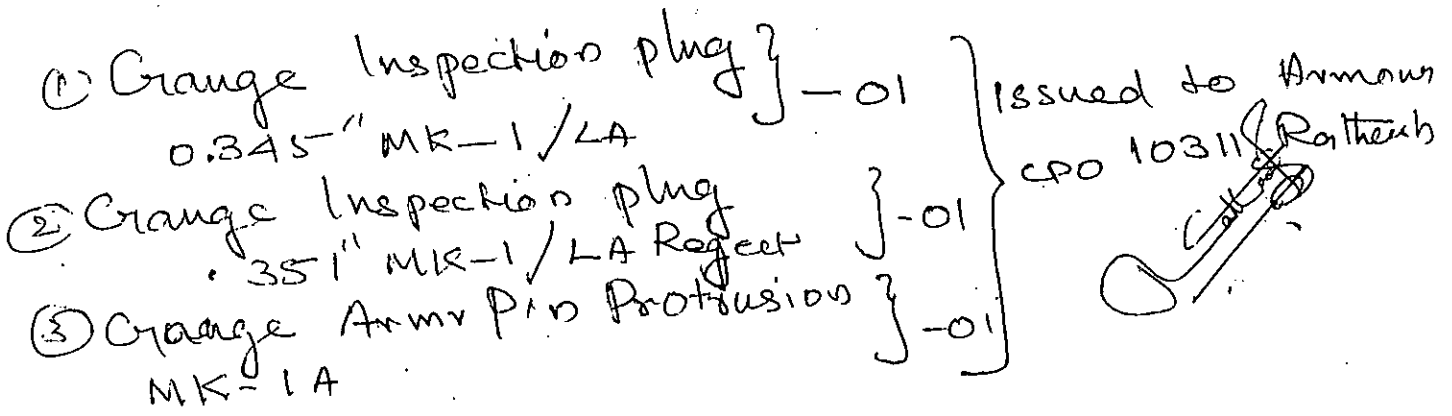 ① Gauge Inspection plug } - 01
0.345" MK-1/LA
② Gauge Inspection plug } - 01
.351" MK-1/LA Regect
③ Gauge Armr Pin Protrusion } - 01
MK-1A
Issued to Armour
CPO 10311